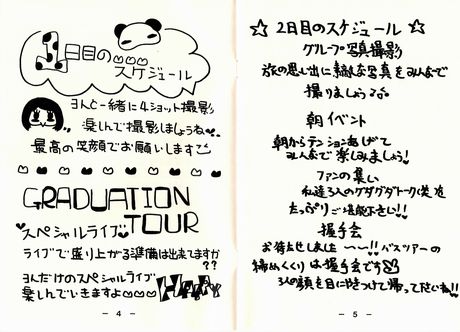 1日目の
スケジュール
3人と一緒に4ショット撮影
楽しんで撮影しましょうね
最高の笑顔でお願いします
GRADUATION
TOUR
スペシャルライブ
ライブで盛り上がる準備は出来てますか
??
3人だけのスペシャルライブ
楽しんでいきますよ
HAPPY
- 4 -
☆ 2日目のスケジュール ☆
グループ写真撮影
旅の思い出に素敵な写真をみんなで
撮りましょう
朝イベント
朝からテンションあげて
みんなで楽しみましょう!
ファンの集い
私達3人のグダグダトーク
たっぷりご堪能下さい!!
握手会
お待たせしました〜〜!! バスツアーの
締めくくりは握手会です
3人の顔を目にやきつけて帰ってださいね!!
- 5 -